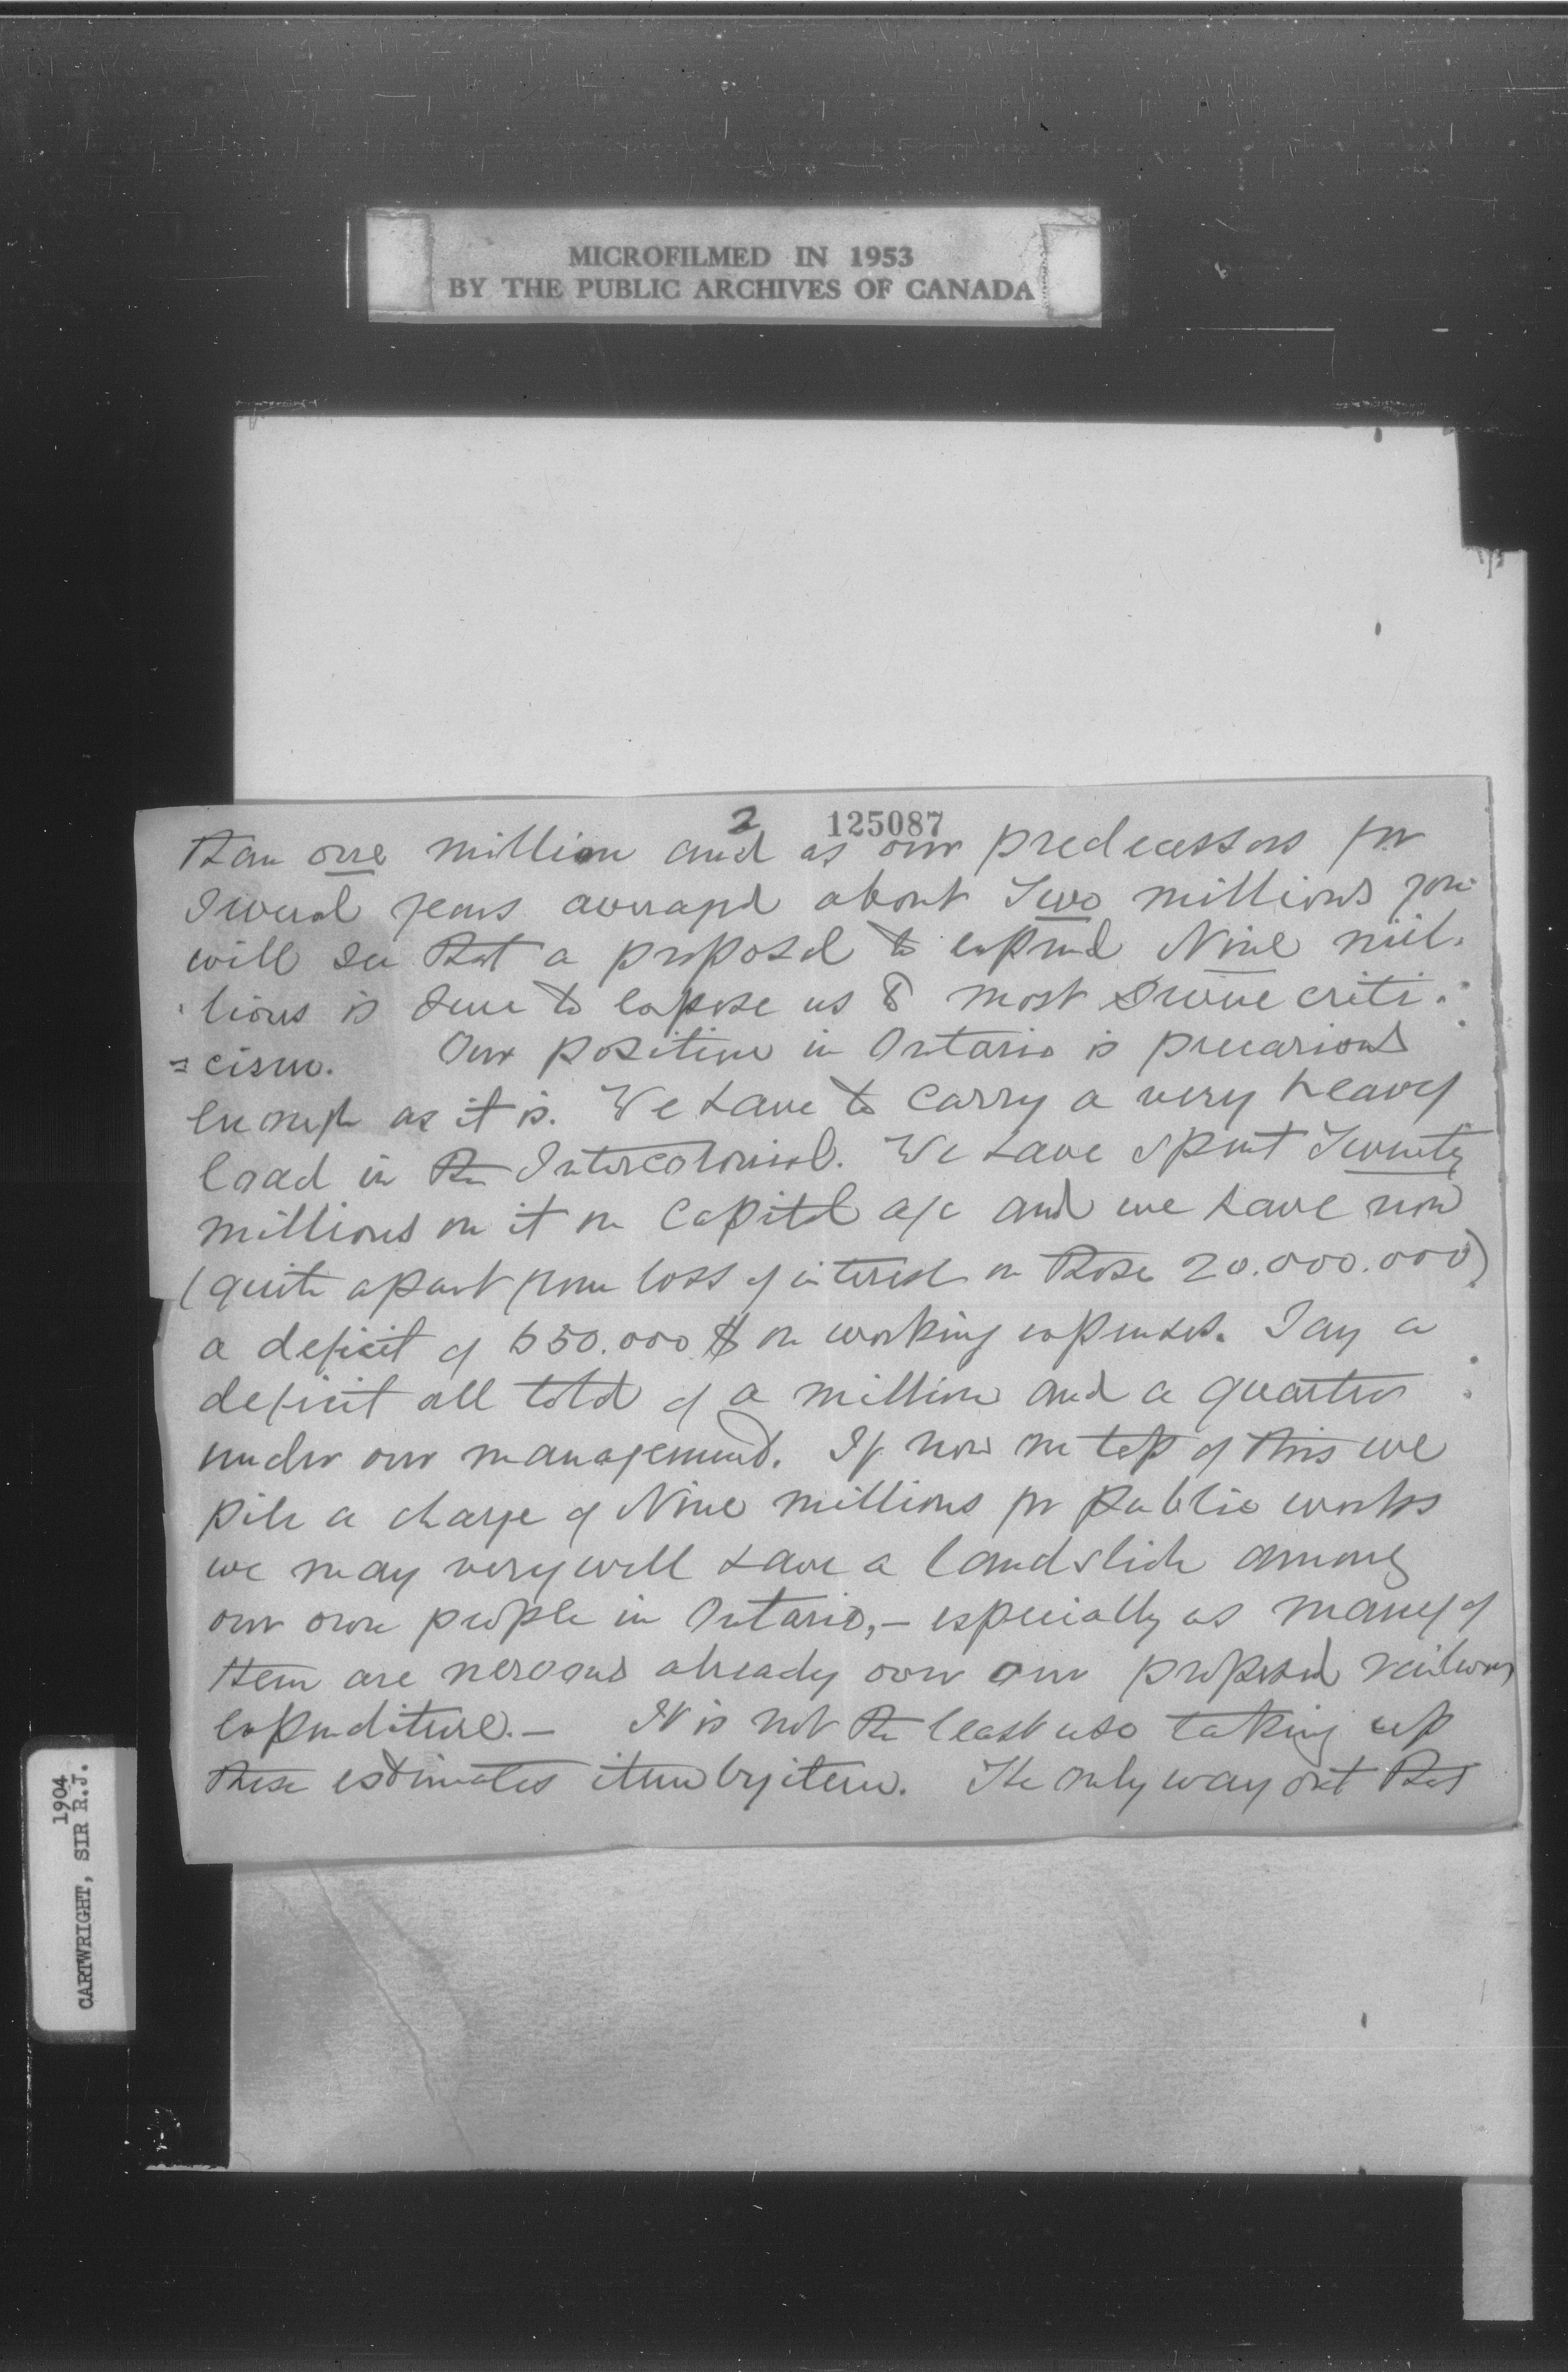 MICROFILMED IN 1953
BY THE PUBLIC ARCHIVES OF CANADA
2 125087
than one million and as our predecessors for
several years averaged about Two millions you
will see that a proposal to expend Nine mil-
lions is sure to expose us to most severe criti-
=cism. Our position in Ontario is precarious
enough as it is. We have to carry a very heavy
load in the Intercolonial. We have spent Twenty
millions on it on Capital a/c and we have now
(quite apart from loss of interest on those 20.000.000)
a deficit of 550.000 $ on working expenses. Say a
deficit all told of a million and a quarter
under our management. If now on top of this we
pile a charge of Nine millions for public works
we may very well have a landslide among
our own people in Ontario,– especially as many of
them are nervous already over our proposed railway
expenditure.– It is not the least use taking up
these estimates item by item. The only way out that
CARTWRIGHT, SIR R.J.
1904